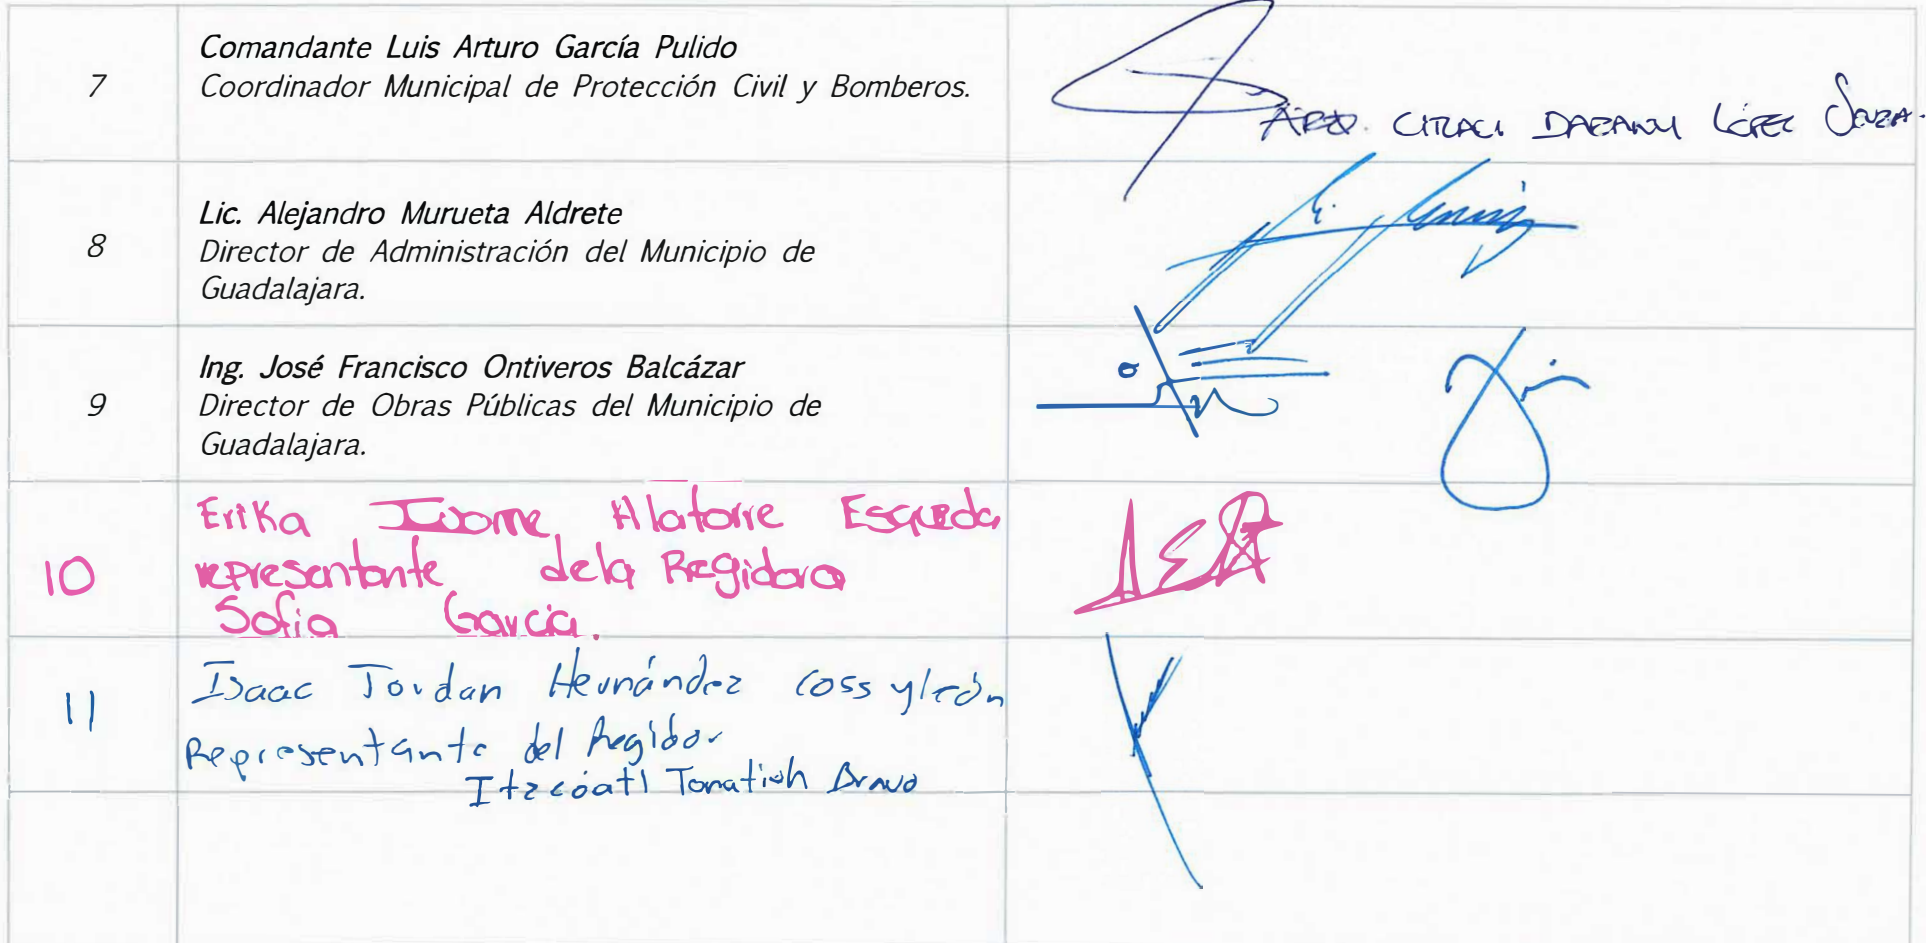 7
Comandante Luis Arturo García Pulido
Coordinador Municipal de Protección Civil y Bomberos.
ARQ. CITLALI LÓPEZ
8
Lic. Alejandro Murueta Aldrete
Director de Administración del Municipio de
Guadalajara.
9
Ing. José Francisco Ontiveros Balcázar
Director de Obras Públicas del Municipio de
Guadalajara.
10
Erika Ivonne Alatorre Esqueda
representante dela Regidora
Sofia García.
11
Isaac Jordan Hernández Coss y león
Representante del Regidor
Itzcóatl Tonatiuh Bravo